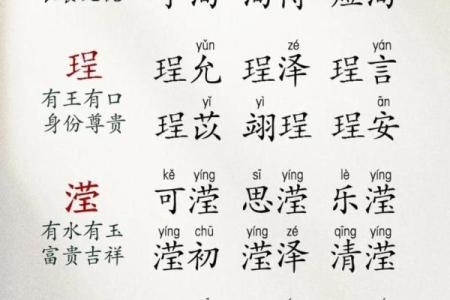 yǔn zé yán
珵 珵允 珵泽 珵言
有王有口
身份尊贵
yǐ yì ān
珵苡 翊珵 珵安
kě yíng sī yíng lè yíng
滢 可滢 思滢 乐滢
有水有玉
富贵吉祥
yíng chū yíng zé qīng yíng
滢初 滢泽 清滢